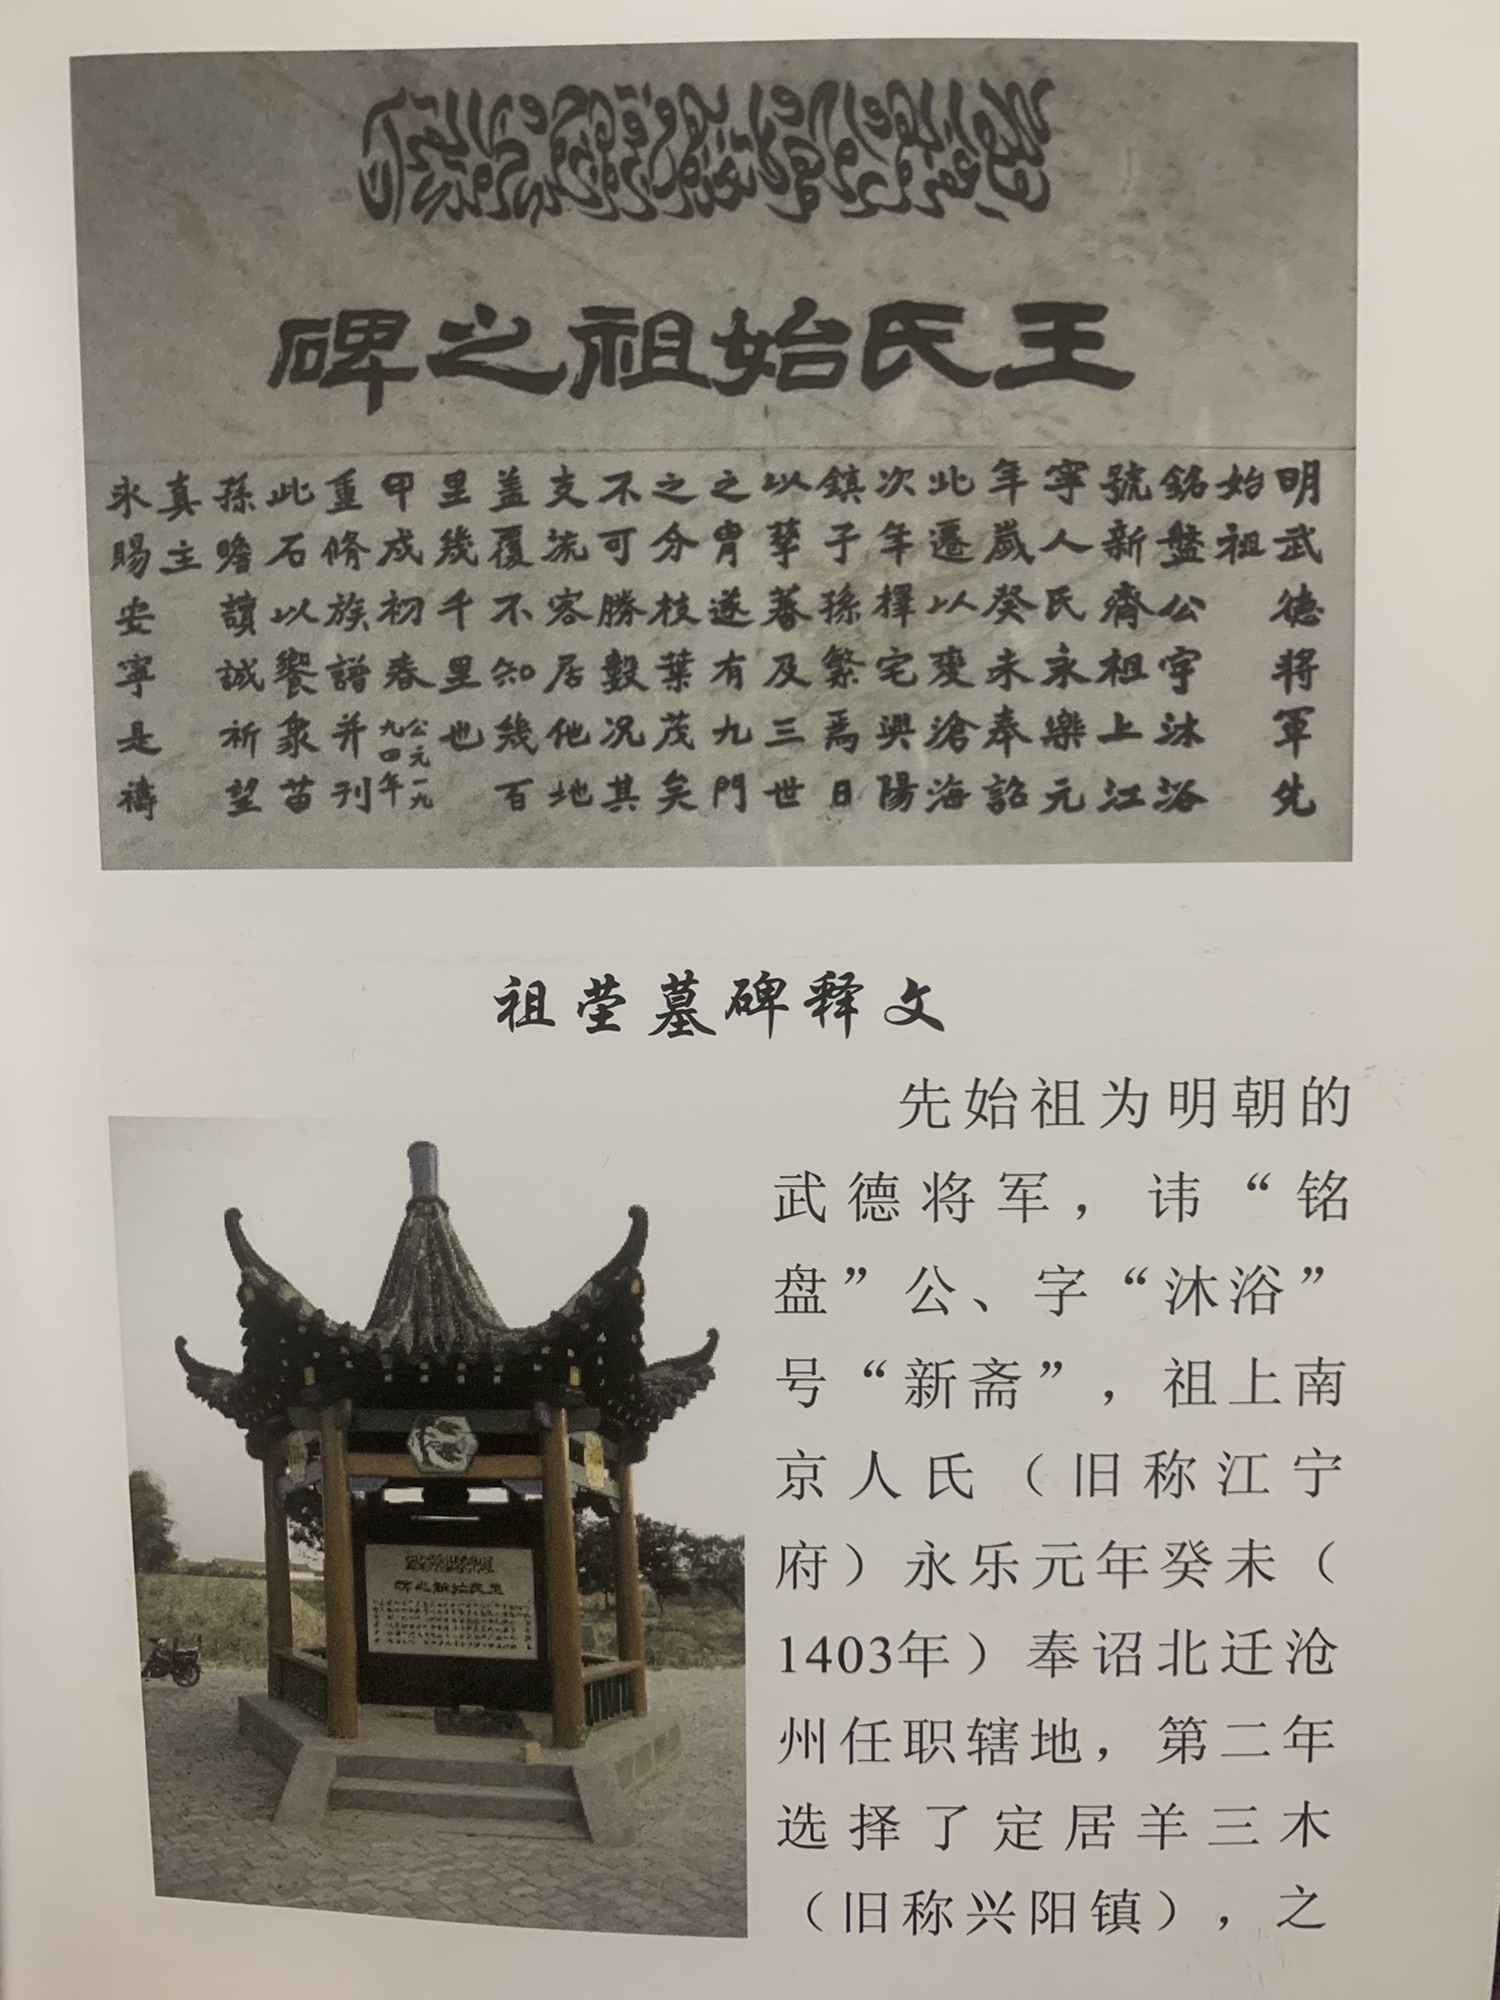 王氏始祖之碑
明武德将軍先
始祖
銘盤公字沐浴
號新齋祖上江
寧人民永樂元
年歲癸未奉詔
北遷以变滄海
次年擇宅興陽
鎮子孫繁焉日
以孳蕃及三世
之胄遂有九門
之分枝葉茂矣
不可勝數况其
支流客居他地
盖覆不知幾百
里幾千里也
甲戍初春公元一九九四年
重脩族譜并刊
此石以饗衆苗
孫瞻讀誠祈望
真主
永賜安寧是禱
祖茔墓碑释文
先始祖为明朝的
武德将军，讳“铭
盘”公、字“沐浴”
号“新斋”，祖上南
京人氏（旧称江宁
府）永乐元年癸未（
1403年）奉诏北迁沧
州任职辖地，第二年
选择了定居羊三木
（旧称兴阳镇），之